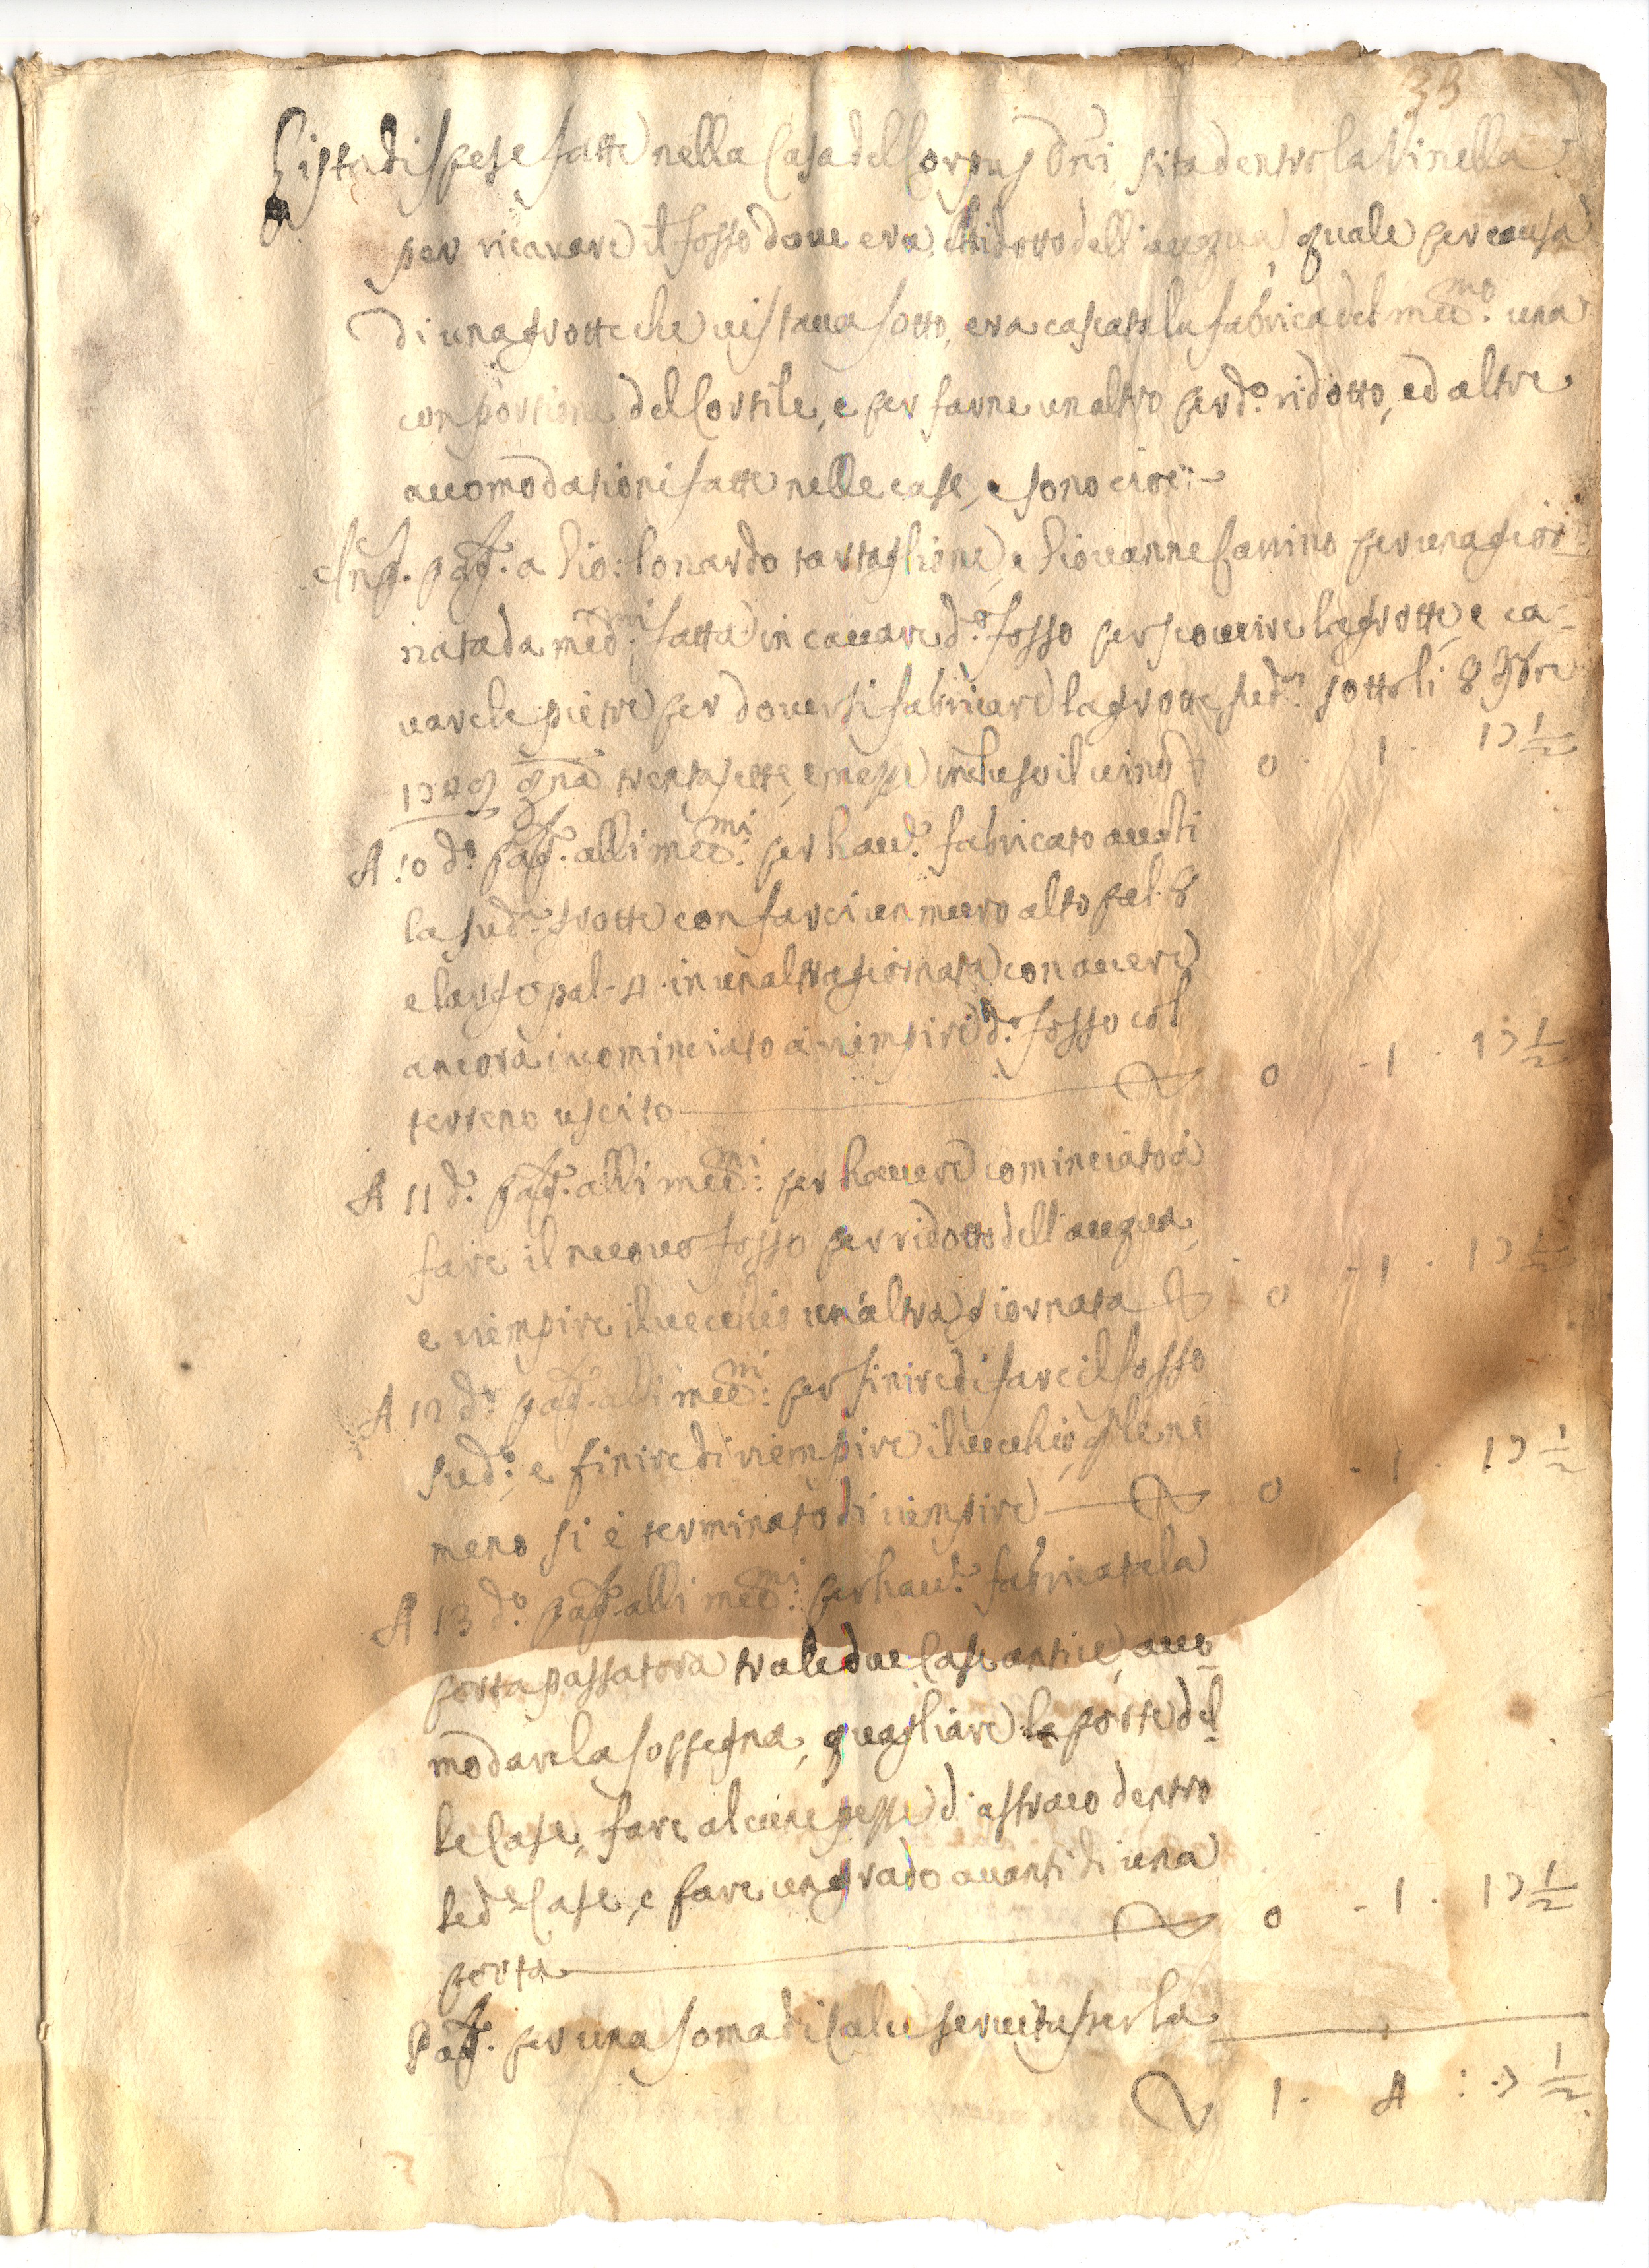 33
Lista di spese fatte nella Casa del Corpus Dñi sita dentro la Vinella
per ricavare il fosso dove era il ridotto dell'acqua, quale per causa
di una grotte che vi stava sotto, era cascata la fabrica del med.mo una
con portione del Cortile, e per farne un altro per d.o ridotto, ed altre
accomodationi fatte nelle case, e sono cioè:
Inp. pag. a Gio: Lonardo tartaglione, e Giovanne farrino per una gior
nata da med.mi fatta in cavare d.o fosso per scovrire le grotte, e ca-
vare le pietre per doversi fabricare la grotte sud.a sotto li 8 9bre
grana trentasette, e mezzo incluso il vino 0 1 17 1/2
A 10 d.o pag. alli med.mi per hav.e fabricato avanti
la sud.a grotte con farci un muro alto pal. 8
e largo pal. 4 in un altra giornata con avere
ancora incominciato a riempire d.o fosso col
terreno uscito 0 1 17 1/2
A 11 d.o pag. alli med.mi per havere cominciato à
fare il nuovo fosso per ridotto dell'acqua,
e riempire il vecchio un'altra giornata 0 1 17 1/2
A 12 d.o pag. alli med.mi per finire di fare il fosso
sud.o, e finire di riempire il vecchio, qle ne
meno si è terminato di riempire 0 1 17 1/2
A 13 d.o pag. alli med.mi per hav.e fabricata la
porta passatora tra le due Case antice, acco
modare la soppegna, quagliare le porte del
le Case, fare alcune pezze d'astraco dentro
le d.e Case, e fare un grado avanti di una
porta 0 1 17 1/2
Pag. per una soma di Calce servita per la
1 4 : 7 1/2